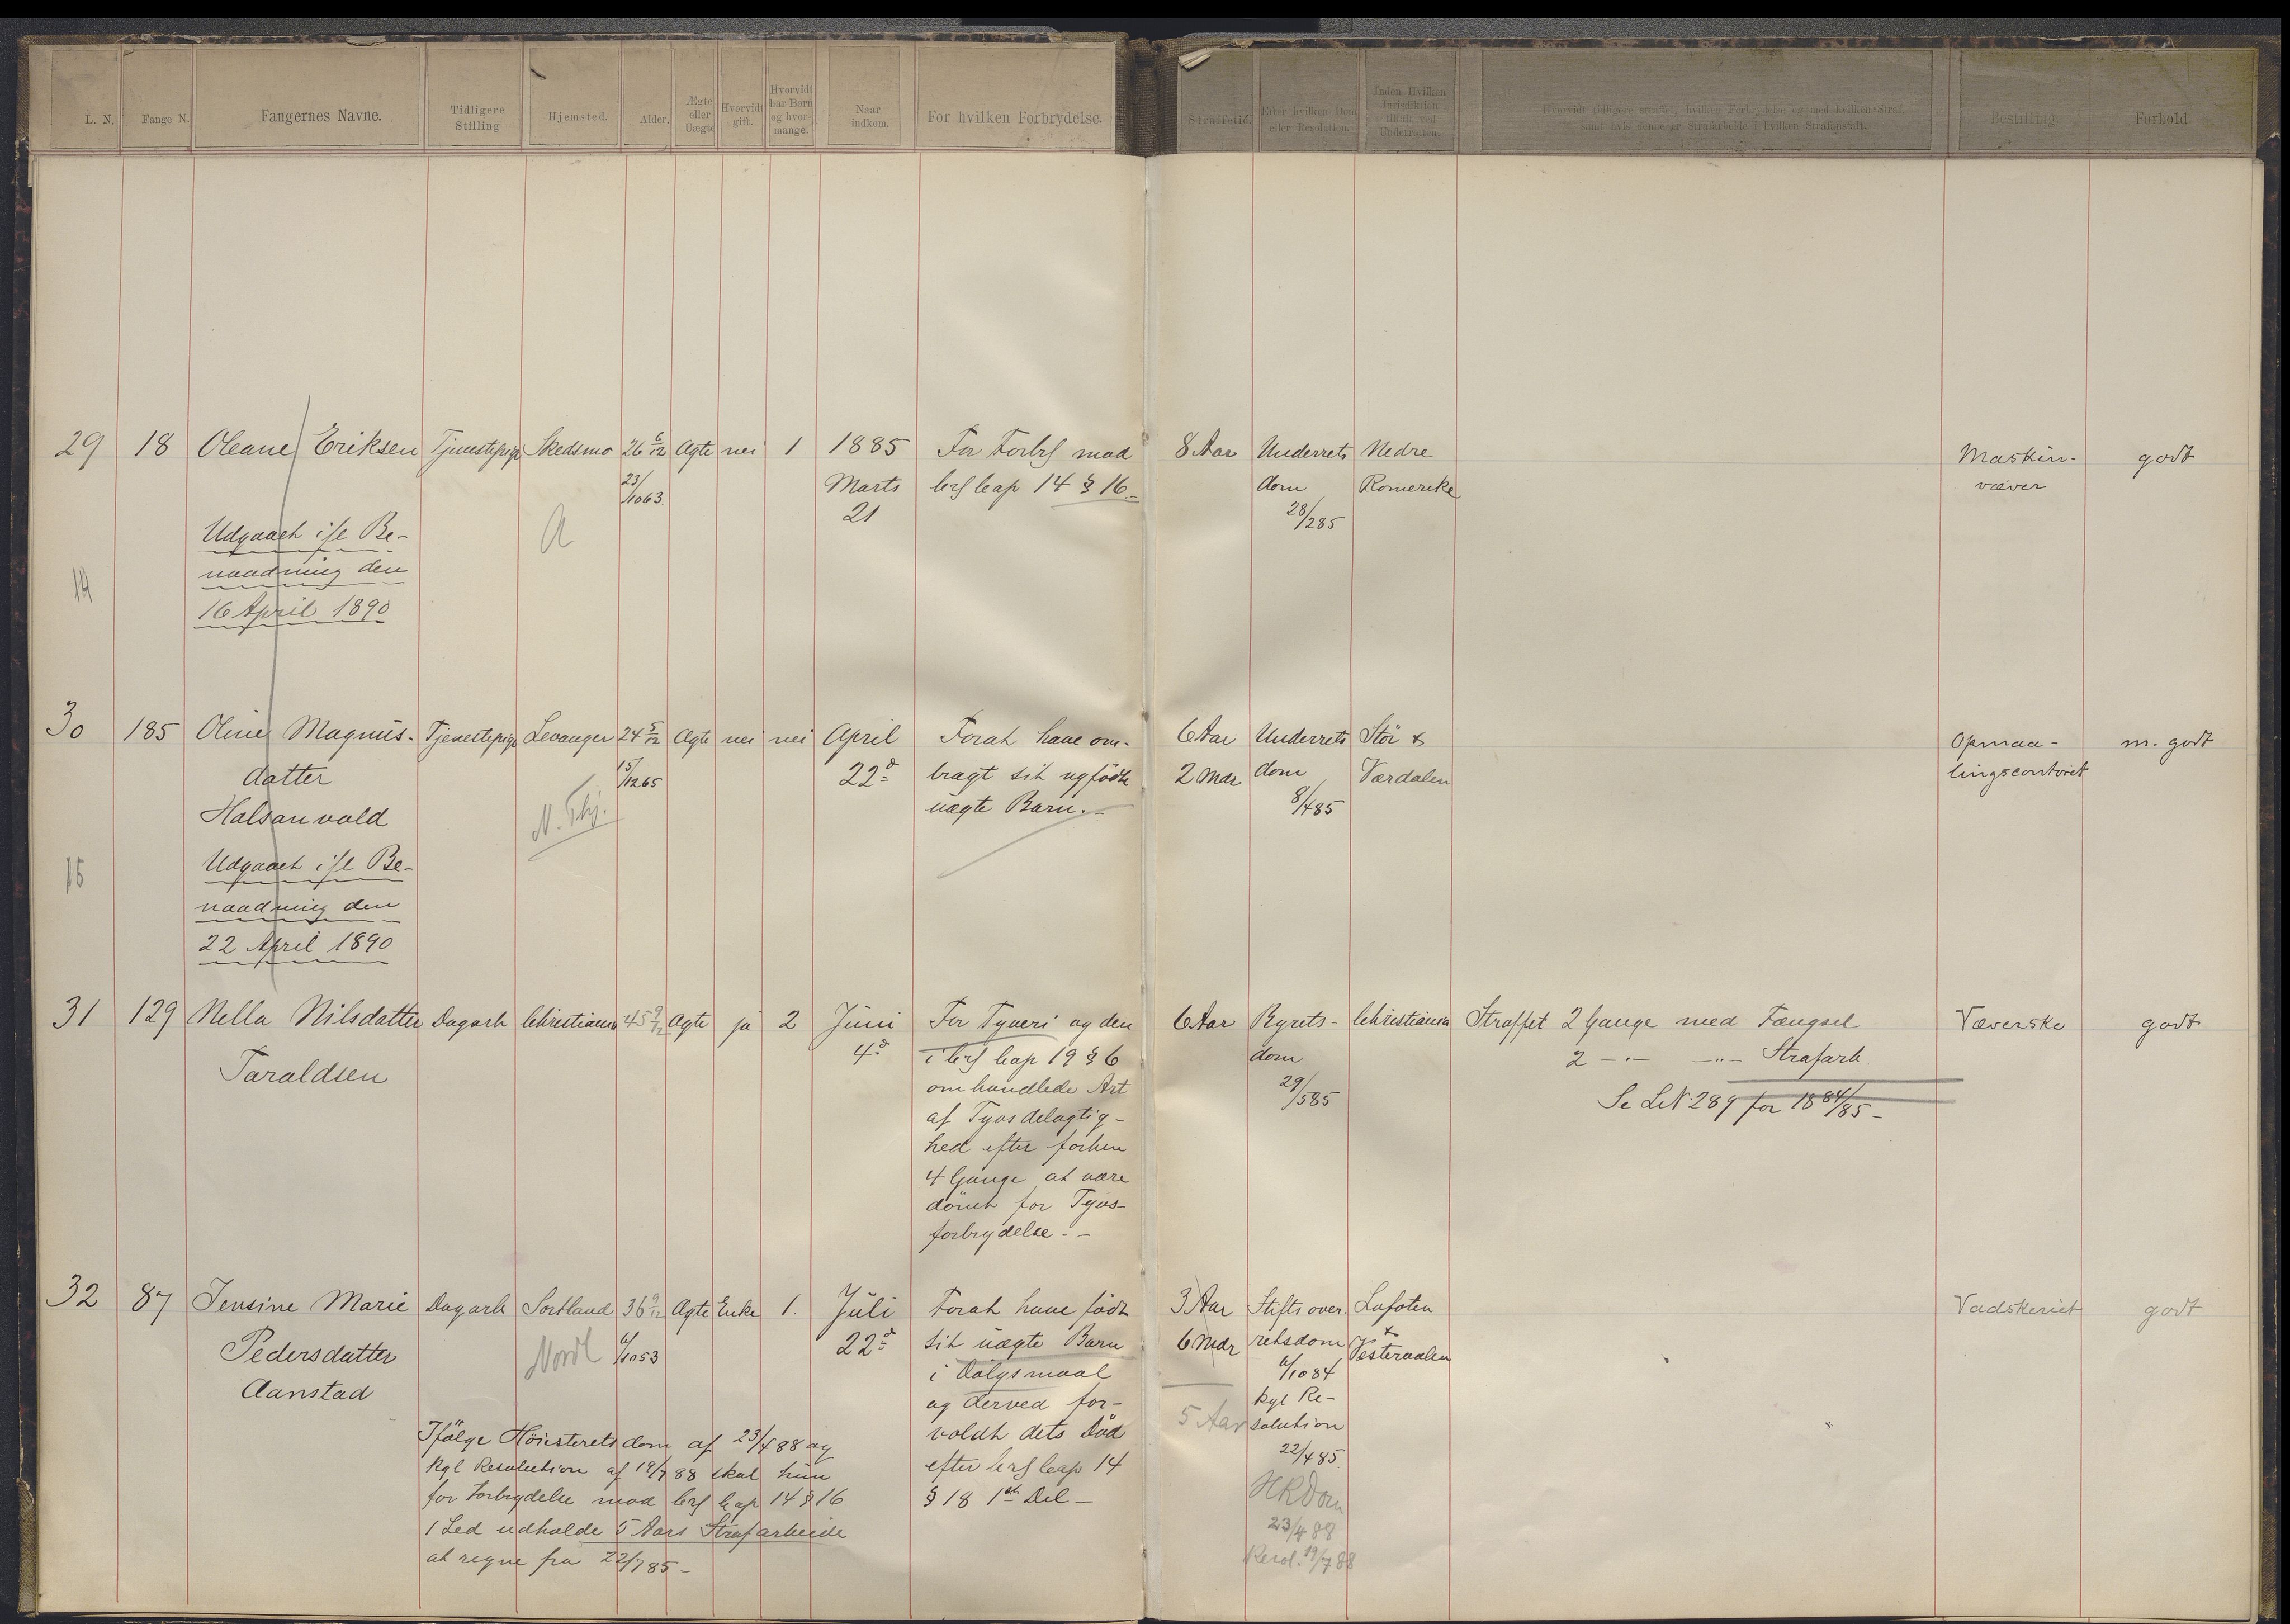 L. N.
Fange N.
Fangernes Navne.
Tidligere
Stilling
Hjemsted.
Alder.
Ægte
eller
Uægte
Hvorvidt
gift.
Hvorvidt
har Børn
og hvor-
mange.
Naar
indkom.
For hvilken Forbrydelse.
Straffetid.
Efter hvilken Dom
eller Resolution.
Inden Hvilken
Jurisdiktion
tiltalt ved
Underretten.
Hvorvidt tidligere straffet, hvilken Forbrydelse og med hvilken Straf,
samt hvis denne er Strafarbeide i hvilken Strafanstalt.
Bestilling
Forhold
29
18
Oleane Eriksen
Udgaaet ifl Be-
naadning den
16 April 1890
14
Tjenestepige
Skedsmo
A
26 6/12
23/1063.
Ægte
nei
1
1885
Marts
21
For Forbr mod
Crf Cap 14 § 16.-
8 Aar
Underrets
dom
28/285
Nedre
Romerike
Maskin-
væver
godt
30
185
Oline Magnus-
datter
Halsanvald
Udgaaet ifl Be-
naadning den
22 April 1890
15
Tjenestepige
Levanger
N. Thj.
24 5/12
15/1265
Ægte
nei
nei
April
22d
Forat have om-
bragt sit nyfødte
uægte Barn.-
6 Aar
2 Mdr
Underrets
dom
8/485
Stör &
Værdalen
Opmaa-
lingscontoret
m. godt
31
129
Nella Nilsdatter
Taraldsen
Dagarb
Christiania
45 9/12
Ægte
ja
2
Juni
4d
For Tyveri og den
i Crf Cap 19 § 6
omhandlede Art
af Tyvsdelagtig-
hed efter forhen
4 Gange at være
dömt for Tyvs-
forbrydelse.-
6 Aar
Byrets-
dom
29/585
Christiania
Straffet 2 Gange med Fængsel
2 -"- -"- Strafarb.
Se LN. 289 for 1884/85-
Væverske
godt
32
87
Jensine Marie
Pedersdatter
Aanstad
Dagarb
Sortland
Nordl
36 9/12
6/1053
Ægte
Enke
1.
Juli
22d
Forat have födt
sit uægte Barn
i Dölgsmaal
og derved for-
voldt dets Död
efter Crf Cap 14
§ 18 1st Del-
Ifölge Höiesteretsdom af 23/4 88 og
Kgl Resolution af 19/7 88 skal hun
for Forbrydelse mod Crf Cap 14 § 16
1 Led udholde 5 Aars Strafarbeide
at regne fra 22/7 85-
3 Aar
6 Mdr
5 Aar
Stiftsover-
retsdom
6/1084
Kgl Re-
solution
22/485.
HRDom
23/4 88
Resol. 19/7 88
Lofoten
&
Vesteraalen
Vadskeriet
godt